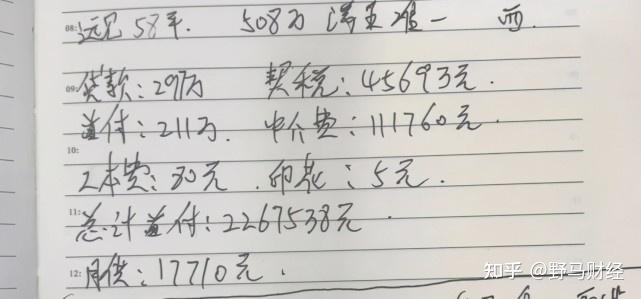 08:
远见 58平. 508万 满五唯一 西.
09: 贷款: 297万 契税: 45693元.
首付: 211万. 中介费: 111760元.
10:
工本费: 80元. 印花: 5元.
11: 总计首付: 2267538元.
12: 月供: 17710元.
知乎 @野马财经